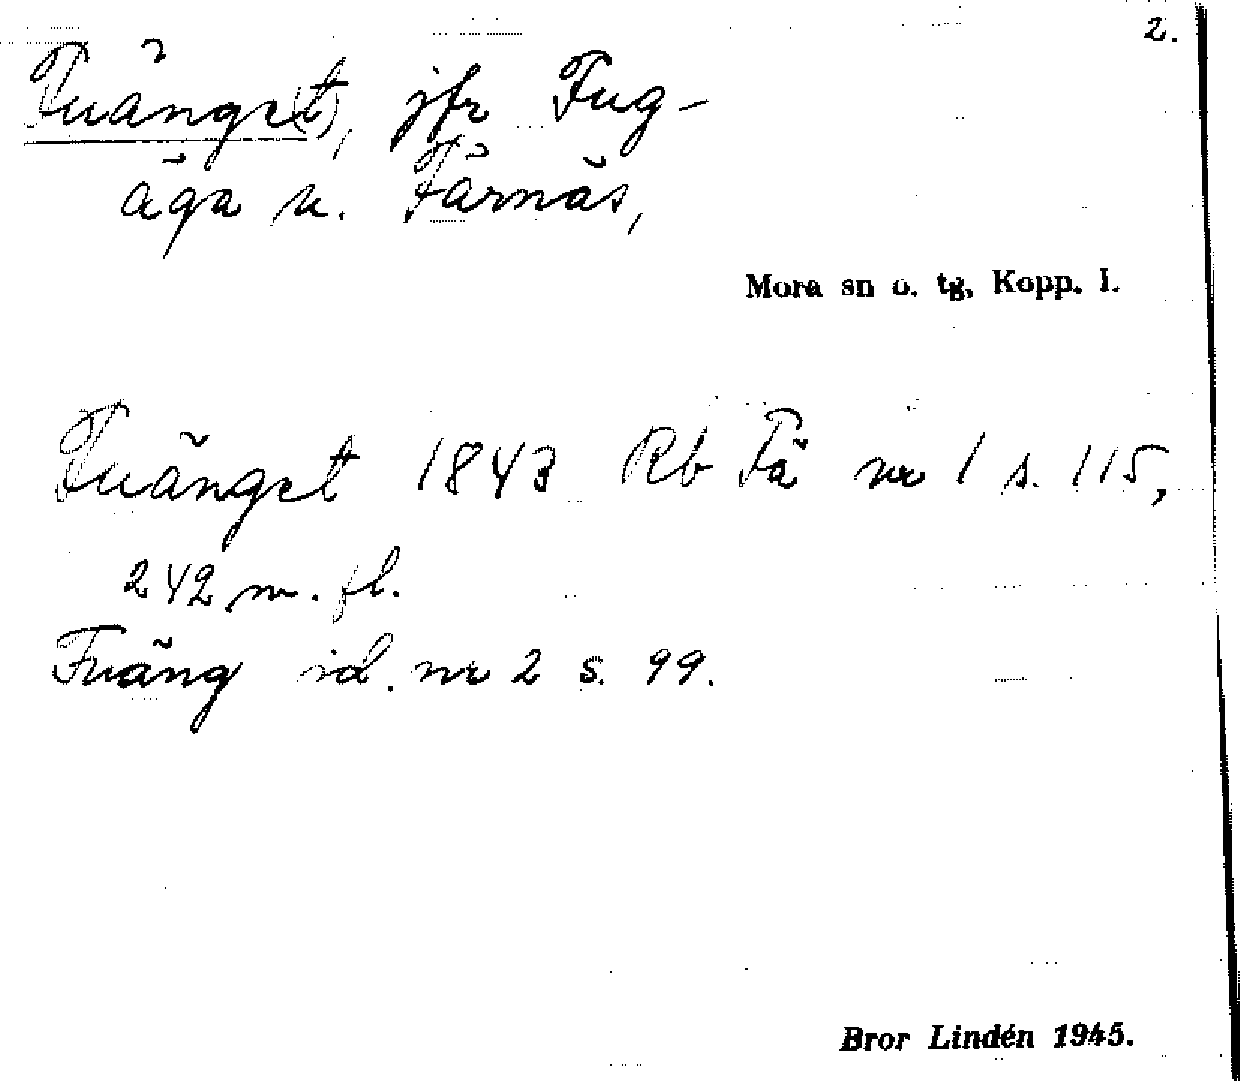 2.
Fuänge(t), jfr Fug-
äga u. Färnäs,
Mora sn o. tg, Kopp. l.
Fuänget 1843 Rb Fä nr 1 s. 115,
242 m. fl.
Fuäng id. nr 2 s. 99.
Bror Lindén 1945.